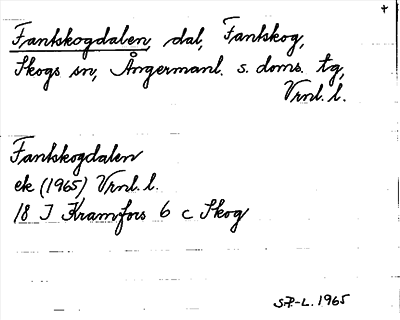 +
Fantskogdalen, dal, Fantskog,
Skogs sn, Ångermanl. s. doms. tg,
Vrnl. l.
Fantskogdalen
ek (1965) Vrnl. l.
18 I Kramfors 6 c Skog
S.P.-L. 1965